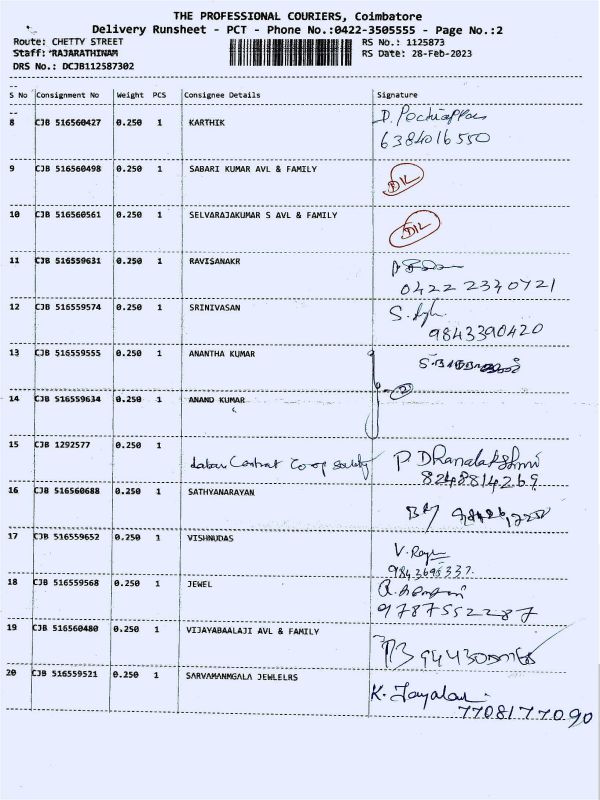 THE PROFESSIONAL COURIERS, Coimbatore
Delivery Runsheet - PCT - Phone No.:0422-3505555 - Page No.:2
Route: CHETTY STREET RS No.: 1125873
Staff: *RAJARATHINAM RS Date: 28-Feb-2023
DRS No.: DCJB112587302
S No Consignment No Weight PCS Consignee Details Signature
8 CJB 516560427 0.250 1 KARTHIK
6384016550
9 CJB 516560498 0.250 1 SABARI KUMAR AVL & FAMILY DIL
10 CJB 516560561 0.250 1 SELVARAJAKUMAR S AVL & FAMILY DIL
11 CJB 516559631 0.250 1 RAVISANAKR
0422 2340721
12 CJB 516559574 0.250 1 SRINIVASAN
9843390420
13 CJB 516559555 0.250 1 ANANTHA KUMAR
14 CJB 516559634 0.250 1 ANAND KUMAR
15 CJB 1292577 0.250 1
Labour Contract Co op society P DHanalakshmi
8248814269
16 CJB 516560688 0.250 1 SATHYANARAYAN
17 CJB 516559652 0.250 1 VISHNUDAS
18 CJB 516559568 0.250 1 JEWEL
9787552287
19 CJB 516560480 0.250 1 VIJAYABAALAJI AVL & FAMILY
20 CJB 516559521 0.250 1 SARVAMANMGALA JEWLELRS
K. Jayalax
7708177090